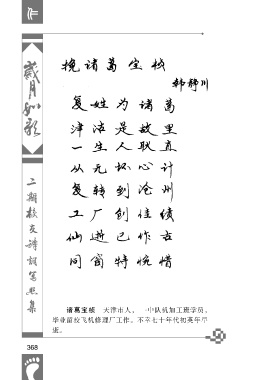 作
岁月如歌
二期校友诗词墨迹集
挽诸葛宝栈
韩静川
复姓为诸葛
津沽是故里
一生人耿直
从无坏心计
复转到沧州
工厂创佳绩
仙逝已作古
同窗特惋惜
诸葛宝桢 天津市人，一中队机加工班学员，
毕业留校飞机修理厂工作。不幸七十年代初英年早
逝。
368